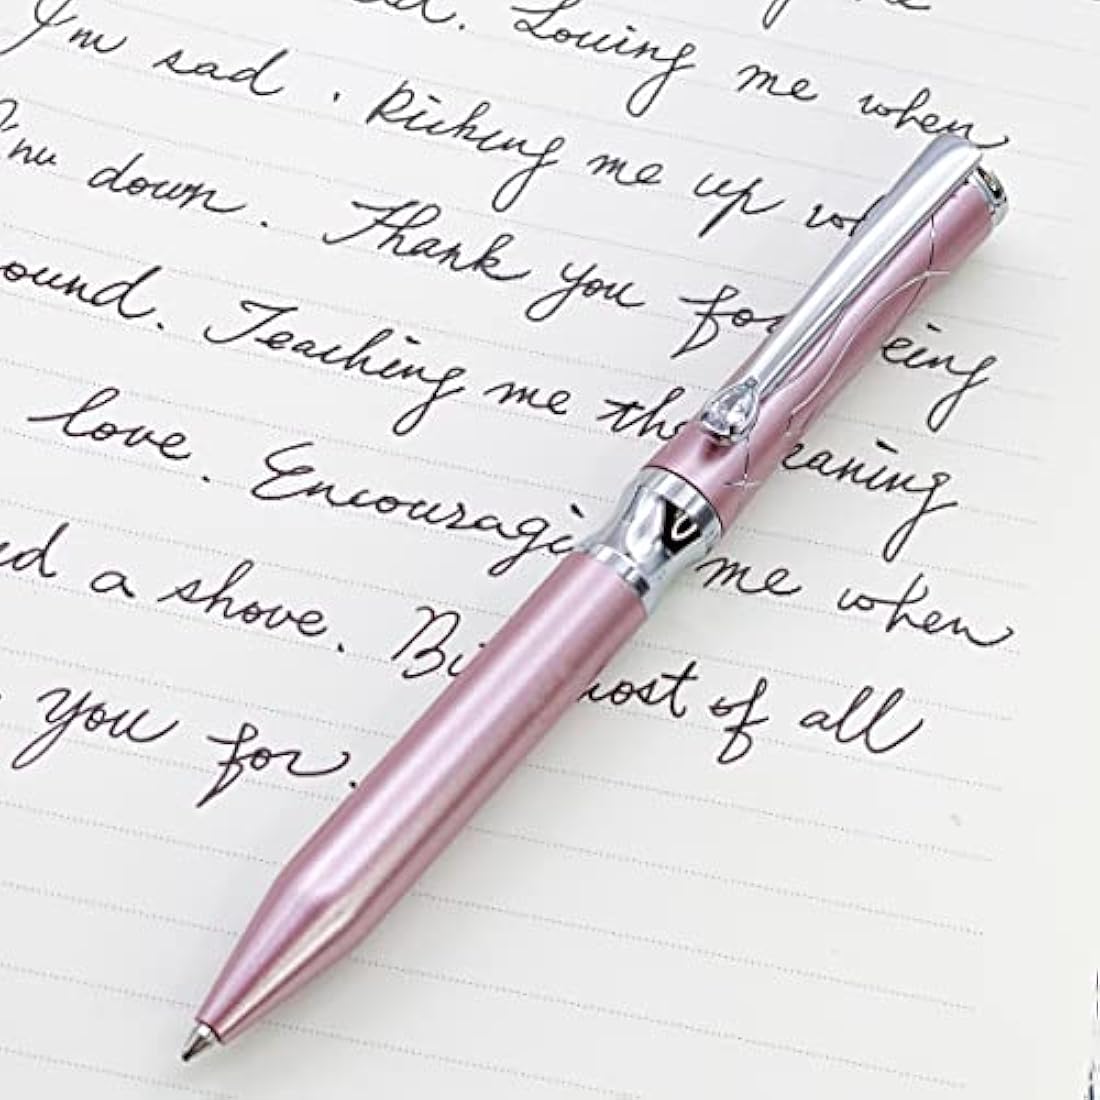 Loving me when
I'm sad. Picking me up
I'm down. Thank you for being
ound. Teaching me the meaning
love. Encouraging me when
a shove. But most of all
you for.